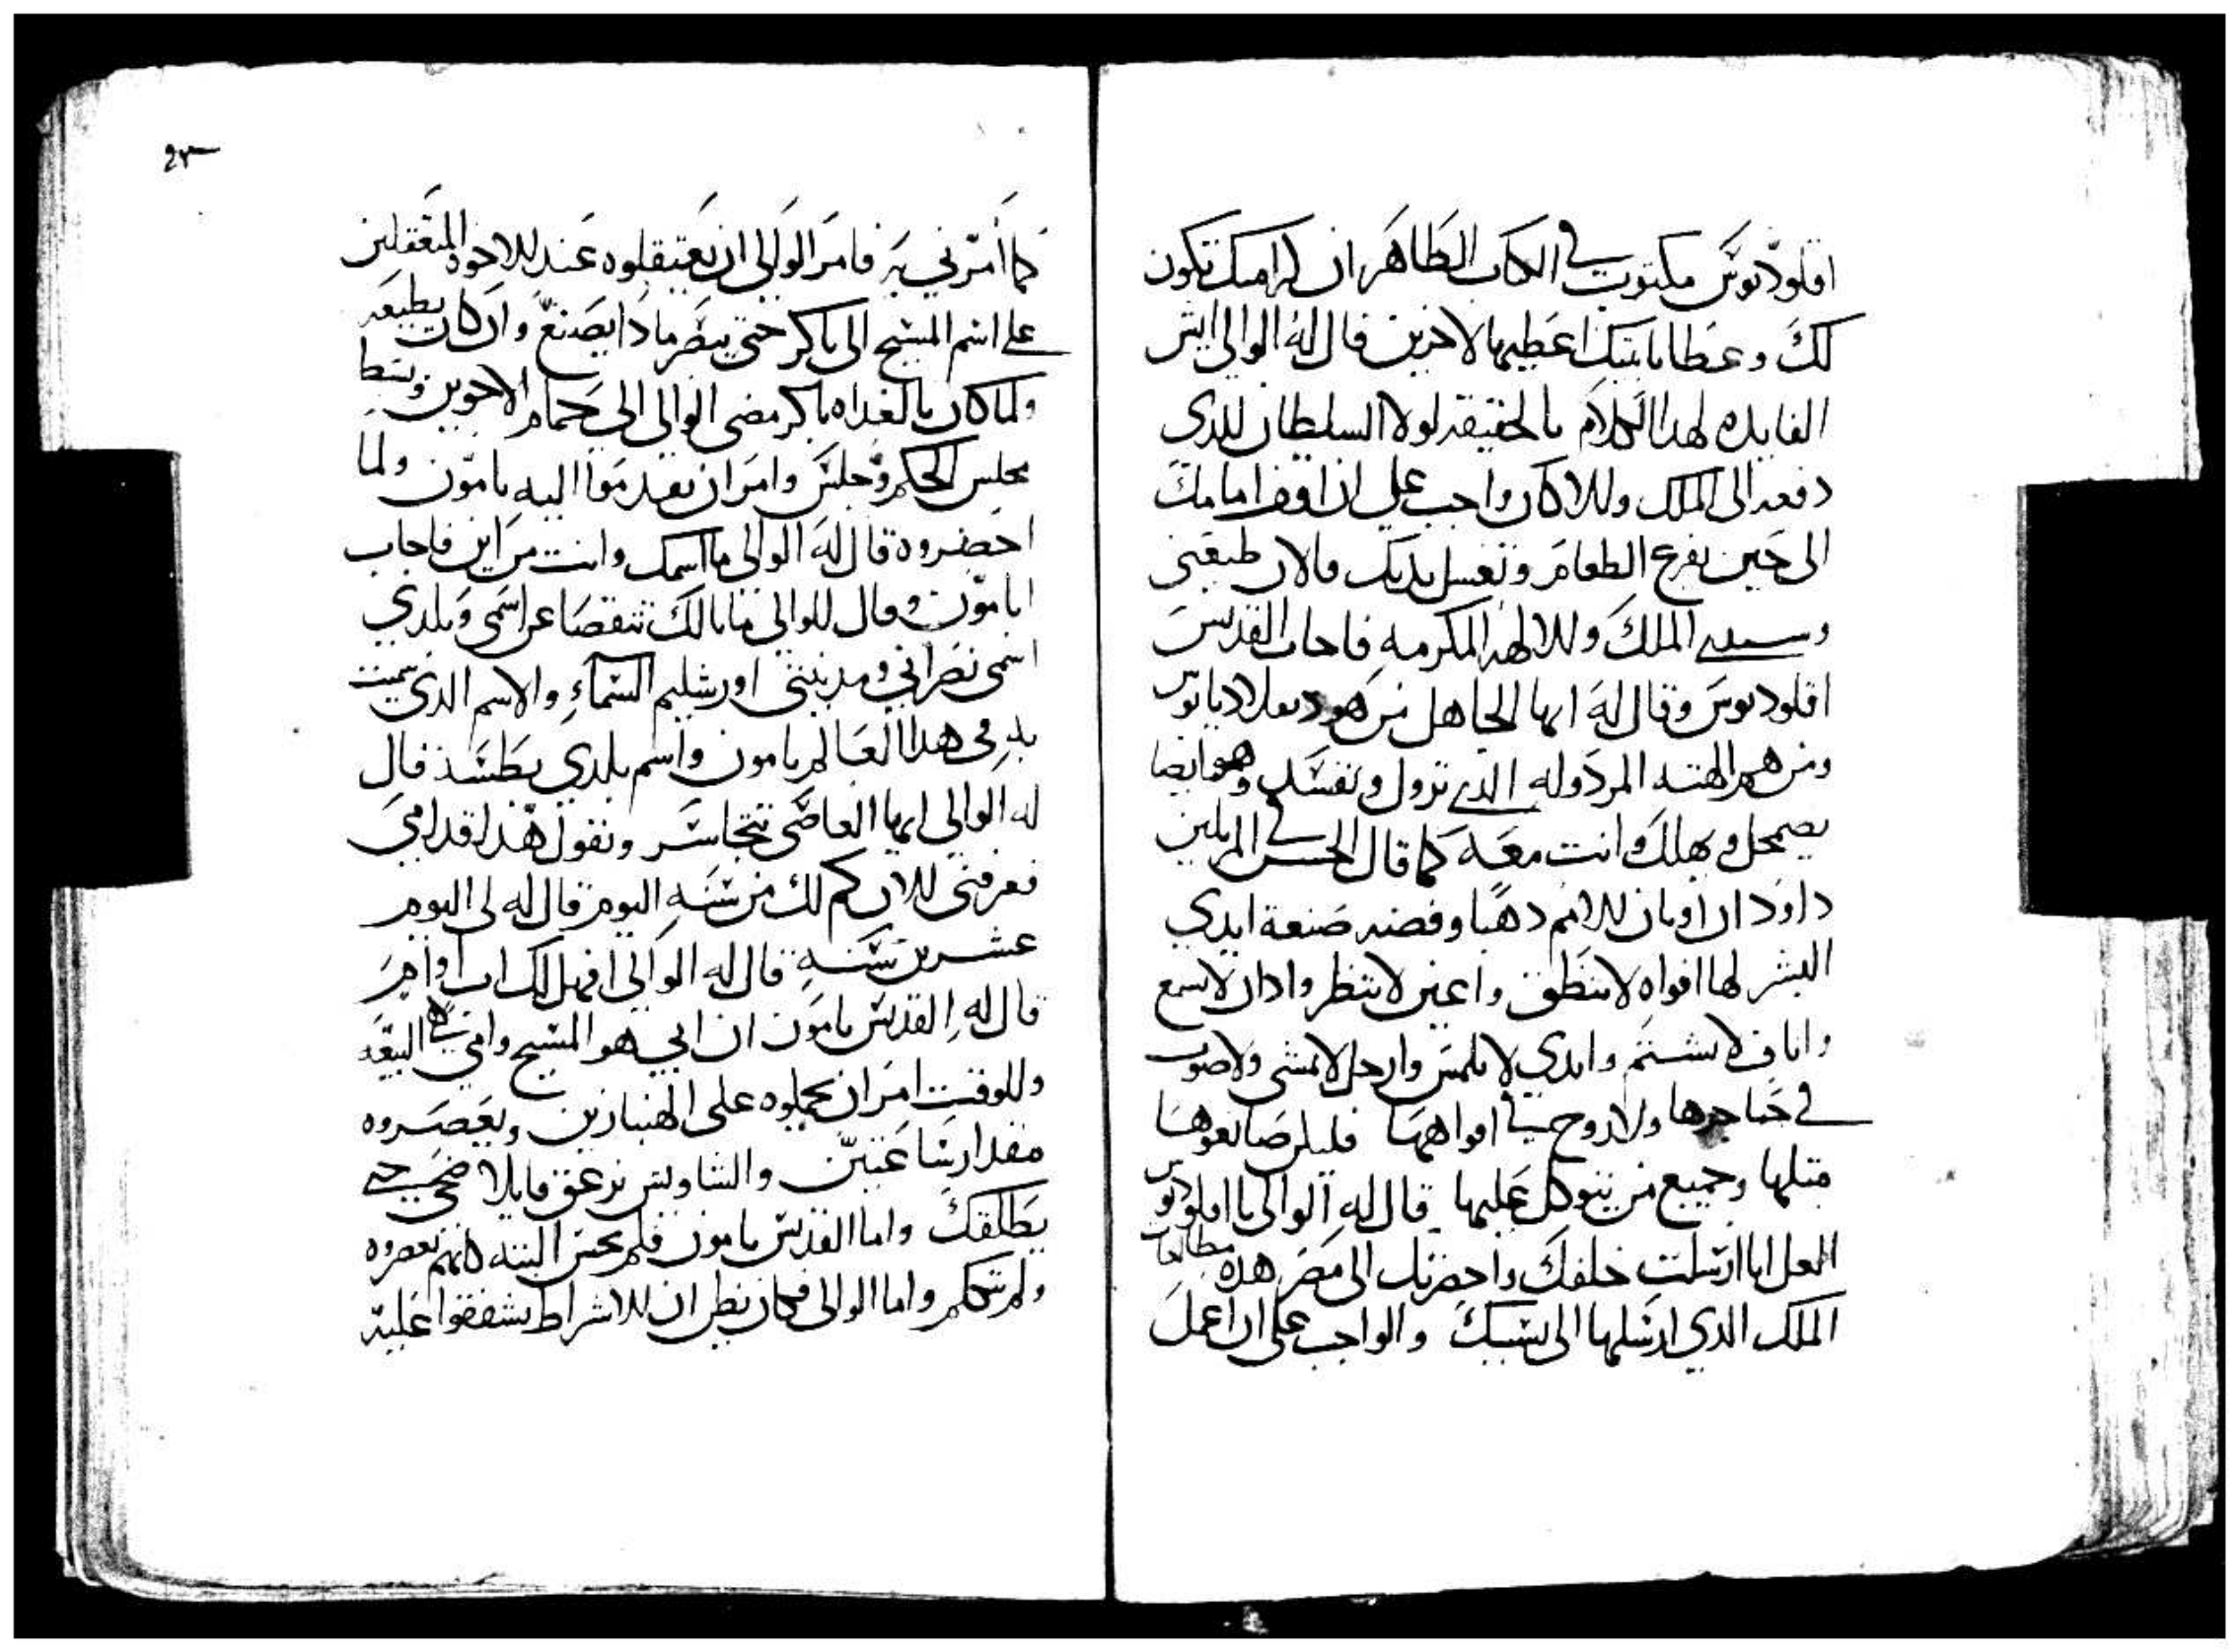 اقلوديوس مكتوب في الكتاب الطاهر ان كرامتك تكون
لك وعطايا بيتك اعطيها لاخرين قال له الوالي ايش
الفايده لهدا الكلام بالحقيقه لولا السلطان الدي
دفعه الى الملك والا كان واجب علي ان اقف امامك
الى حين تفرغ الطعام وتغسل يديك والان طيعني
الملك والالهه المكرمه فاجاب القديس
اقلوديوس وقال له ايها الجاهل من هو دقلاديانوس
ومن هم الهته المردوله الدي تزول وتفسد وهو ايضا
يضمحل ويهلك وانت معه كما قال الحسن في المرتلين
داود ان اوتان الامم دهبا وفضه صنعة ايدي
البشر لها افواه لا تنطق واعين لا تنظر وادان لا تسمع
واناف لا تشتم وايدي لا تلمس وارجل لا تمشي ولا صوت
في حناجرها ولا روح في افواهها فليكن صانعوها
متلها وجميع من يتوكل عليها قال له الوالي يا اقلوديوس
لعل انا ارسلت خلفك واحضرتك الى مصر هده مطالعات
الملك الدي ارسلها الى بسببك والواجب علي ان اعمل
٢٣
كما امرني به فامر الوالي ان يعتقلوه عند الاخوه المعتقلين
على اسم المسيح الى باكر حتى ينضر مادا يصنع وان كان يطيعه
ولما كان بالغداه باكر مضى الوالي الى حمام الاخوين وسط
مجلس الحكم وجلس وامر ان يقدموا اليه بامون ولما
احضروه قال له الوالي ما اسمك وانت من اين فاجاب
ابامون وقال للوالي ما بالك تتقصا عن اسمي وبلدي
اسمي نصراني ومدينتي اورشليم السماء والاسم الدي سميت
به في هدا العالم بامون واسم بلدي بطشد قال
له الوالي ايها العاصي تتجاسر وتقول هدا قدامي
فعرفني الان كم لك من سنه اليوم قال له لي اليوم
عشرين سنه قال له الوالي افهل لك اب او ام
قال له القديس بامون ان ابي هو المسيح وامي هي البيعه
وللوقت امر ان يحملوه على الهنبازين ويعصروه
مقدار ساعتين والشاويش يزعق قايلا ضحي حتى
يطلقك واما القديس بامون فلم يحس البته كانهم يعصروه
ولم يتكلم واما الوالي فكان يظن ان الاشراط يشفقوا عليه